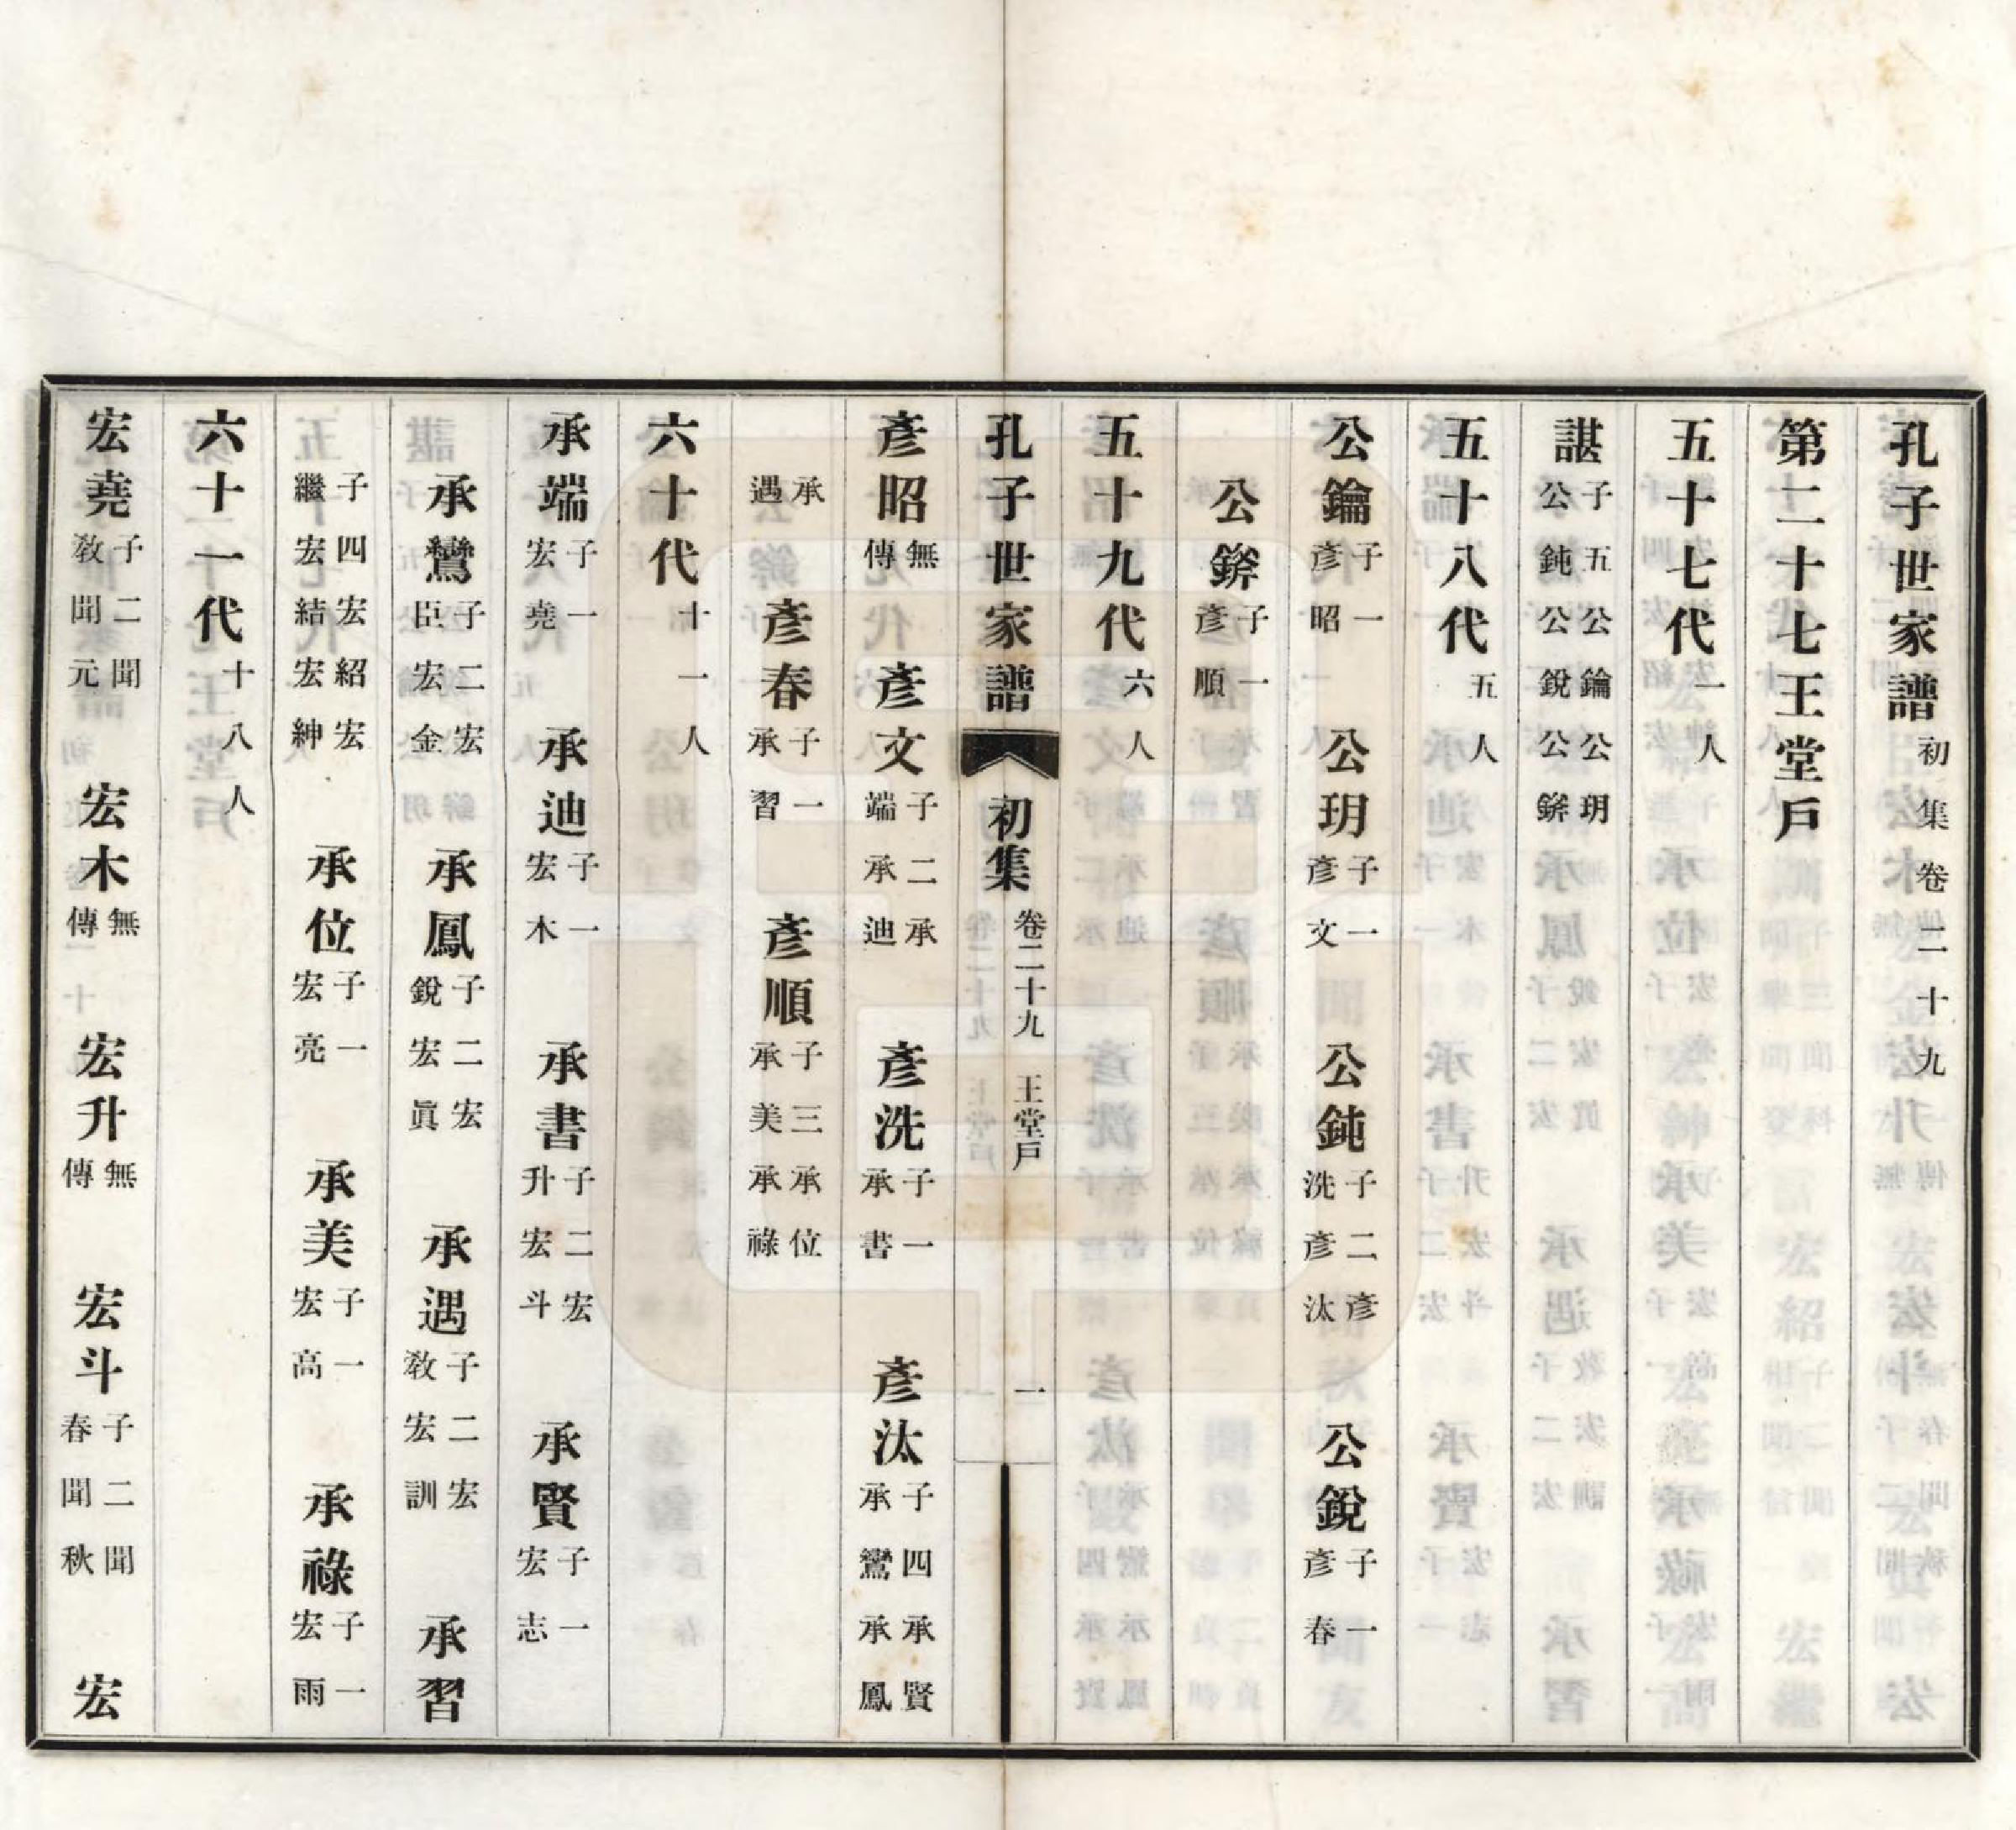 孔子世家譜初集卷二十九
第二十七王堂戶
五十七代一人
諶子五公鑰公玥公鈍公銳公鎽
五十八代五人
公鑰子一彥昭 公玥子一彥文 公鈍子二彥洗彥汰 公銳子一彥春
公鎽子一彥順
五十九代六人
孔子世家譜 初集 卷二十九 王堂戶 一
彥昭無傳 彥文子二承端承迪 彥洗子一承書 彥汰子四承賢承鸞承鳳
承遇 彥春子一承習 彥順子三承位承美承祿
六十代十一人
承端子一宏堯 承迪子一宏木 承書子二宏升宏斗 承賢子一宏志
承鸞子二宏臣宏金 承鳳子二宏銳宏眞 承遇子二宏教宏訓 承習
子四宏紹宏繼宏結宏紳 承位子一宏亮 承美子一宏高 承祿子一宏雨
六十一代十八人
宏堯子二聞教聞元 宏木無傳 宏升無傳 宏斗子二聞春聞秋 宏